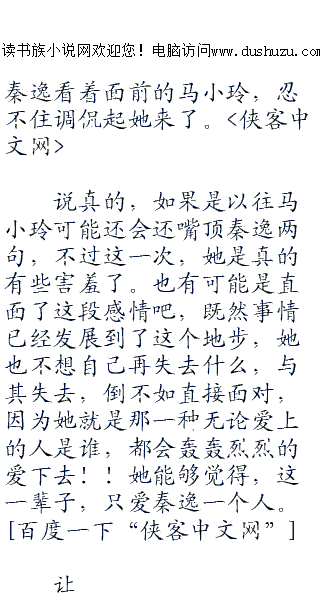 读书族小说网欢迎您！电脑访问www.dushuzu.com
秦逸看着面前的马小玲，忍
不住调侃起她来了。<侠客中
文网>
说真的，如果是以往马
小玲可能还会还嘴顶秦逸两
句，不过这一次，她是真的
有些害羞了。也有可能是直
面了这段感情吧，既然事情
已经发展到了这个地步，她
也不想自己再失去什么，与
其失去，倒不如直接面对，
因为她就是那一种无论爱上
的人是谁，都会轰轰烈烈的
爱下去！！她能够觉得，这
一辈子，只爱秦逸一个人。
[百度一下“侠客中文网”]
让